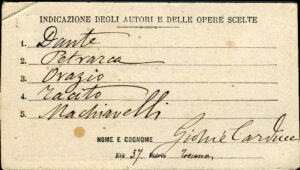 INDICAZIONE DEGLI AUTORI E DELLE OPERE SCELTE
1. Dante
2. Petrarca
3. Orazio
4. Tacito
5. Machiavelli
NOME E COGNOME Giosuè Carducci
Età 57. Patria Toscana